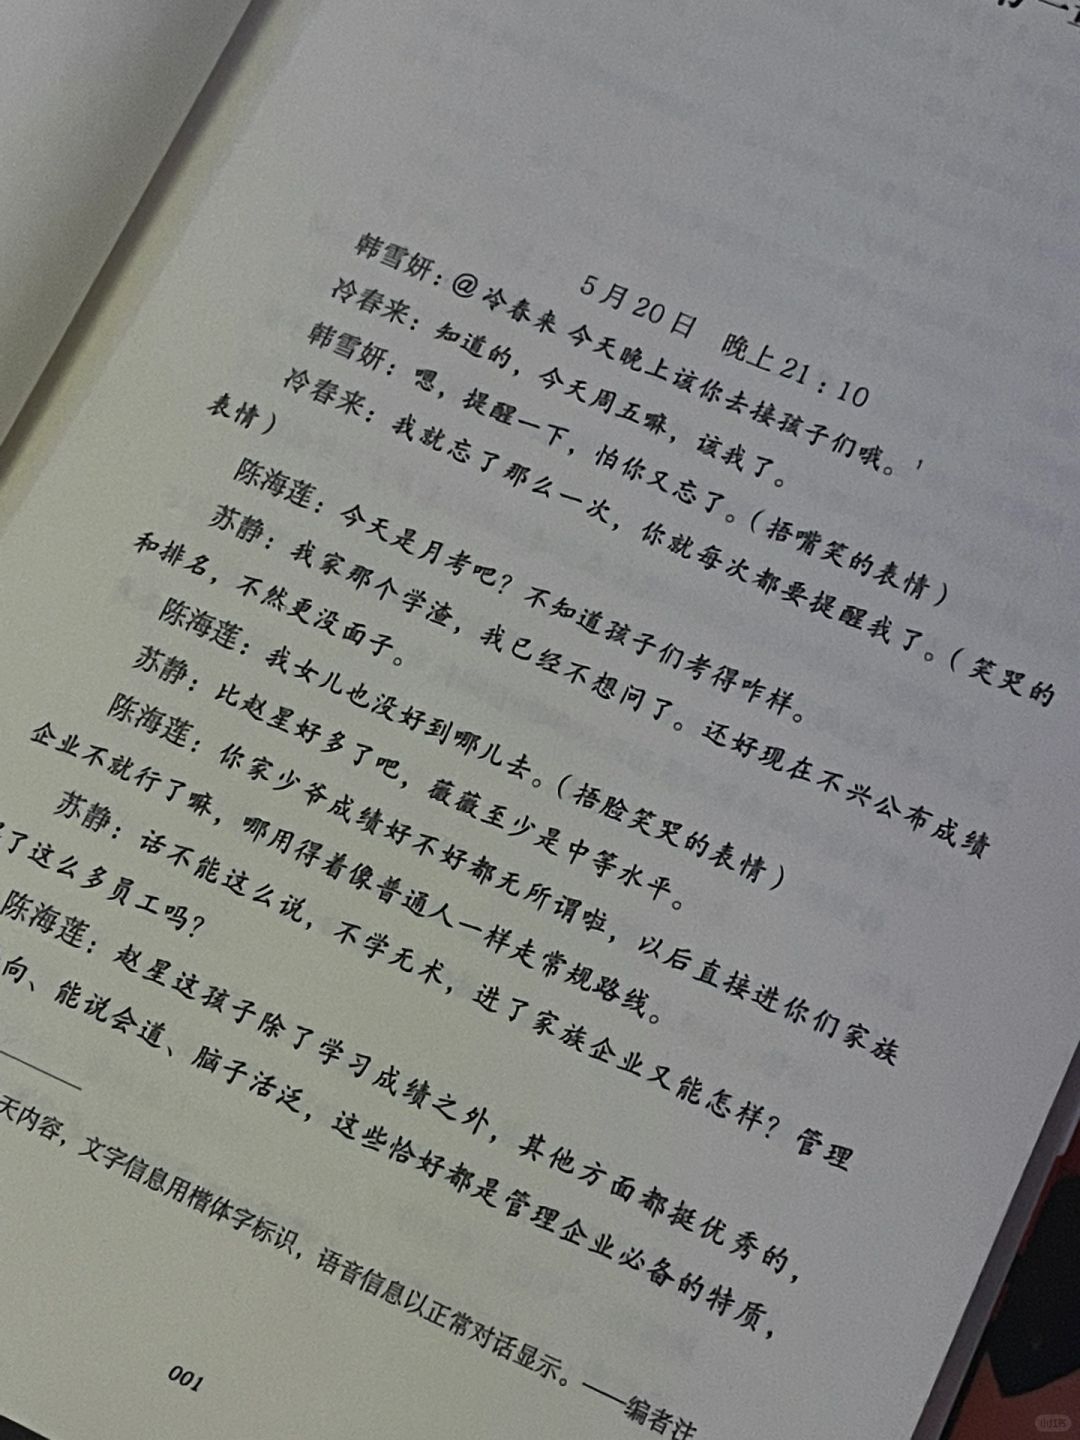 5月20日 晚上21:10
韩雪妍：@冷春来 今天晚上该你去接孩子们哦。1
冷春来：知道的，今天周五嘛，该我了。
韩雪妍：嗯，提醒一下，怕你又忘了。（捂嘴笑的表情）
冷春来：我就忘了那么一次，你就每次都要提醒我了。（笑哭的
表情）
陈海莲：今天是月考吧？不知道孩子们考得咋样。
苏静：我家那个学渣，我已经不想问了。还好现在不兴公布成绩
和排名，不然更没面子。
陈海莲：我女儿也没好到哪儿去。（捂脸笑哭的表情）
苏静：比赵星好多了吧，薇薇至少是中等水平。
陈海莲：你家少爷成绩好不好都无所谓啦，以后直接进你们家族
企业不就行了嘛，哪用得着像普通人一样走常规路线。
苏静：话不能这么说，不学无术，进了家族企业又能怎样？管理
了这么多员工吗？
陈海莲：赵星这孩子除了学习成绩之外，其他方面都挺优秀的，
向、能说会道、脑子活泛，这些恰好都是管理企业必备的特质，
天内容，文字信息用楷体字标识，语音信息以正常对话显示。——编者注
001
小红书